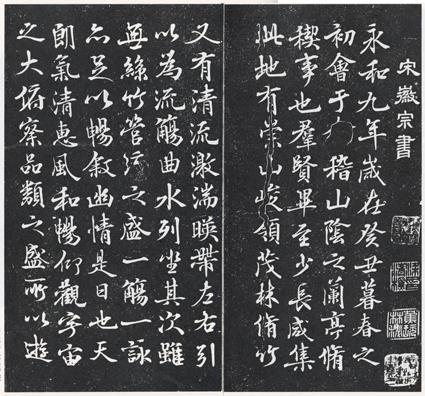 宋徽宗書
永和九年歲在癸丑暮春之
初會于會稽山陰之蘭亭脩
稧事也羣賢畢至少長咸集
此地有崇山峻領茂林脩竹
又有清流激湍暎帶左右引
以為流觴曲水列坐其次雖
無絲竹管弦之盛一觴一詠
亦足以暢敘幽情是日也天
朗氣清惠風和暢仰觀宇宙
之大俯察品類之盛所以遊